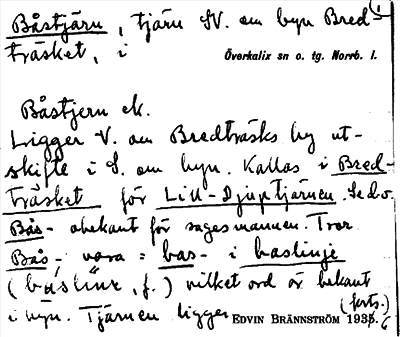 Båstjärn, tjärn SV. om byn Bred-
träsket, i Överkalix sn o. tg. Norrb. l.
Båstjern ek.
Ligger V. om Bredträsks by ut-
skifte i S. om byn. Kallas i Bred-
träsket för Lill-Djuptjärnen. Se d.o.
Bås- obekant för sagesmannen. Tror
Bås- vara = bas- i baslinje
(båslinr, f.) vilket ord är bekant
i byn. Tjärnen ligger (forts.)
EDVIN BRÄNNSTRÖM 1935.